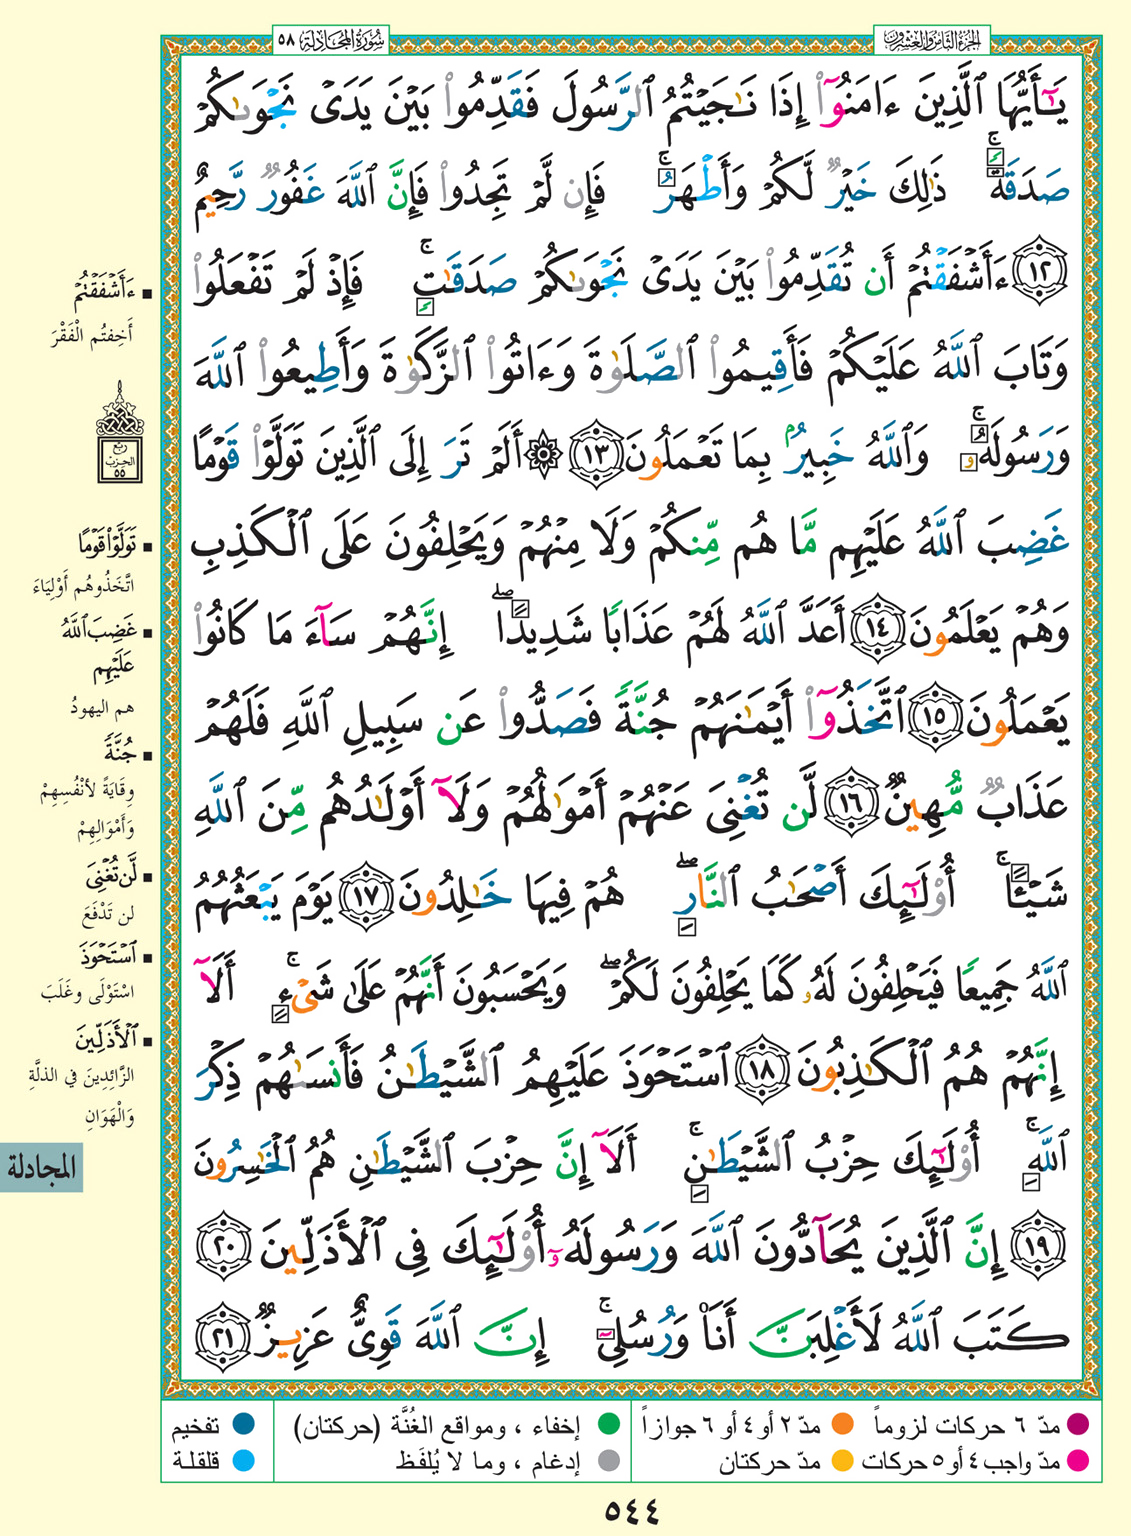 الجزء الثامن والعشرون
سورة المجادلة ٥٨
يَـٰٓأَيُّهَا ٱلَّذِينَ ءَامَنُوٓا۟ إِذَا نَـٰجَيْتُمُ ٱلرَّسُولَ فَقَدِّمُوا۟ بَيْنَ يَدَىْ نَجْوَىٰكُمْ
صَدَقَةً ۚ ذَٰلِكَ خَيْرٌ لَّكُمْ وَأَطْهَرُ ۚ فَإِن لَّمْ تَجِدُوا۟ فَإِنَّ ٱللَّهَ غَفُورٌ رَّحِيمٌ
١٢ ءَأَشْفَقْتُمْ أَن تُقَدِّمُوا۟ بَيْنَ يَدَىْ نَجْوَىٰكُمْ صَدَقَـٰتٍ ۚ فَإِذْ لَمْ تَفْعَلُوا۟
وَتَابَ ٱللَّهُ عَلَيْكُمْ فَأَقِيمُوا۟ ٱلصَّلَوٰةَ وَءَاتُوا۟ ٱلزَّكَوٰةَ وَأَطِيعُوا۟ ٱللَّهَ
وَرَسُولَهُۥ ۚ وَٱللَّهُ خَبِيرٌۢ بِمَا تَعْمَلُونَ ١٣ ۞ أَلَمْ تَرَ إِلَى ٱلَّذِينَ تَوَلَّوْا۟ قَوْمًا
غَضِبَ ٱللَّهُ عَلَيْهِم مَّا هُم مِّنكُمْ وَلَا مِنْهُمْ وَيَحْلِفُونَ عَلَى ٱلْكَذِبِ
وَهُمْ يَعْلَمُونَ ١٤ أَعَدَّ ٱللَّهُ لَهُمْ عَذَابًا شَدِيدًا ۖ إِنَّهُمْ سَآءَ مَا كَانُوا۟
يَعْمَلُونَ ١٥ ٱتَّخَذُوٓا۟ أَيْمَـٰنَهُمْ جُنَّةً فَصَدُّوا۟ عَن سَبِيلِ ٱللَّهِ فَلَهُمْ
عَذَابٌ مُّهِينٌ ١٦ لَّن تُغْنِىَ عَنْهُمْ أَمْوَٰلُهُمْ وَلَآ أَوْلَـٰدُهُم مِّنَ ٱللَّهِ
شَيْـًٔا ۚ أُو۟لَـٰٓئِكَ أَصْحَـٰبُ ٱلنَّارِ ۖ هُمْ فِيهَا خَـٰلِدُونَ ١٧ يَوْمَ يَبْعَثُهُمُ
ٱللَّهُ جَمِيعًا فَيَحْلِفُونَ لَهُۥ كَمَا يَحْلِفُونَ لَكُمْ ۖ وَيَحْسَبُونَ أَنَّهُمْ عَلَىٰ شَىْءٍ ۚ أَلَآ
إِنَّهُمْ هُمُ ٱلْكَـٰذِبُونَ ١٨ ٱسْتَحْوَذَ عَلَيْهِمُ ٱلشَّيْطَـٰنُ فَأَنسَىٰهُمْ ذِكْرَ
ٱللَّهِ ۚ أُو۟لَـٰٓئِكَ حِزْبُ ٱلشَّيْطَـٰنِ ۚ أَلَآ إِنَّ حِزْبَ ٱلشَّيْطَـٰنِ هُمُ ٱلْخَـٰسِرُونَ
١٩ إِنَّ ٱلَّذِينَ يُحَآدُّونَ ٱللَّهَ وَرَسُولَهُۥٓ أُو۟لَـٰٓئِكَ فِى ٱلْأَذَلِّينَ ٢٠
كَتَبَ ٱللَّهُ لَأَغْلِبَنَّ أَنَا۠ وَرُسُلِىٓ ۚ إِنَّ ٱللَّهَ قَوِىٌّ عَزِيزٌ ٢١
ءَأَشْفَقْتُمْ
أَخِفتُم الْفَقْرَ
ربع
الحزب
٥٥
تَوَلَّوْا۟ قَوْمًا
اتَّخَذُوهُم أَوْلِيَاءَ
غَضِبَ ٱللَّهُ
عَلَيْهِم
هم اليهودُ
جُنَّةً
وِقَايَةً لأَنْفُسِهِمْ
وَأَمْوَالِهِمْ
لَّن تُغْنِىَ
لن تَدْفَعَ
ٱسْتَحْوَذَ
اسْتَوْلَى وغَلَبَ
ٱلْأَذَلِّينَ
الزَّائِدِينَ في الذلَّةِ
وَالْهَوَانِ
المجادلة
مدّ ٦ حركات لزوماً
مدّ ٢ أو ٤ أو ٦ جوازاً
إخفاء ، ومواقع الغُنَّة (حركتان)
تفخيم
مدّ واجب ٤ أو ٥ حركات
مدّ حركتان
إدغام ، وما لا يُلفَظ
قلقلة
٥٤٤